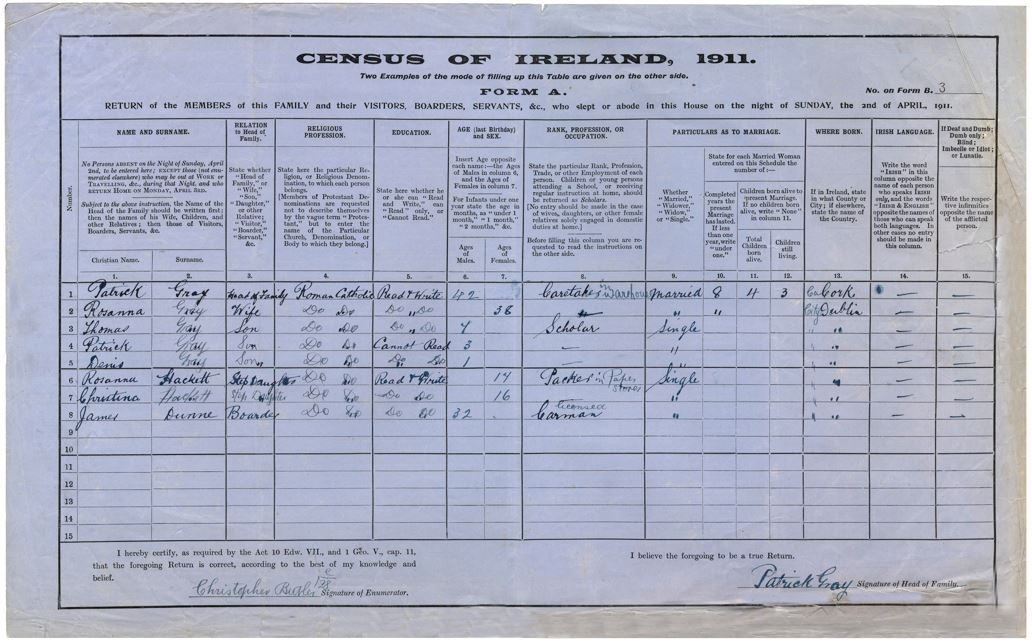 CENSUS OF IRELAND, 1911.
Two Examples of the mode of filling up this Table are given on the other side.
FORM A.
No. on Form B. 3
RETURN of the MEMBERS of this FAMILY and their VISITORS, BOARDERS, SERVANTS, &c., who slept or abode in this House on the night of SUNDAY, the 2nd of APRIL, 1911.
Number.
NAME AND SURNAME.
No Persons ABSENT on the Night of Sunday, April
2nd, to be entered here; EXCEPT those (not enu-
merated elsewhere) who may be out at WORK or
TRAVELLING, &c., during that Night, and who
RETURN HOME ON MONDAY, APRIL 3RD.
Subject to the above instruction, the Name of the
Head of the Family should be written first;
then the names of his Wife, Children, and
other Relatives; then those of Visitors,
Boarders, Servants, &c.
Christian Name. Surname.
RELATION
to Head of
Family.
State whether
"Head of
Family," or
"Wife,"
"Son,"
"Daughter,"
or other
Relative;
"Visitor,"
"Boarder,"
"Servant,"
&c.
RELIGIOUS
PROFESSION.
State here the particular Re-
ligion, or Religious Denom-
ination, to which each person
belongs.
[Members of Protestant De-
nominations are requested
not to describe themselves
by the vague term "Protes-
tant," but to enter the
name of the Particular
Church, Denomination, or
Body to which they belong.]
EDUCATION.
State here whether he
or she can "Read
and Write," can
"Read" only, or
"Cannot Read."
AGE (last Birthday)
and SEX.
Insert Age opposite
each name:—the Ages
of Males in column 6,
and the Ages of
Females in column 7.
For Infants under one
year state the age in
months, as "under 1
month," "1 month,"
"2 months," &c.
Ages
of
Males.
Ages
of
Females.
RANK, PROFESSION, OR
OCCUPATION.
State the particular Rank, Profession,
Trade, or other Employment of each
person. Children or young persons
attending a School, or receiving
regular instruction at home, should
be returned as Scholars.
[No entry should be made in the case
of wives, daughters, or other female
relatives solely engaged in domestic
duties at home.]
Before filling this column you are re-
quested to read the instructions on
the other side.
PARTICULARS AS TO MARRIAGE.
Whether
"Married,"
"Widower,"
"Widow,"
or "Single."
State for each Married Woman
entered on this Schedule the
number of:—
Completed
years the
present
Marriage
has lasted.
If less
than one
year, write
"under
one."
Children born alive to
present Marriage.
If no children born
alive, write "None"
in column 11.
Total
Children
born
alive.
Children
still
living.
WHERE BORN.
If in Ireland, state
in what County or
City; if elsewhere,
state the name of
the Country.
IRISH LANGUAGE.
Write the word
"IRISH" in this
column opposite the
name of each person
who speaks IRISH
only, and the words
"IRISH & ENGLISH"
opposite the names of
those who can speak
both languages. In
other cases no entry
should be made in
this column.
If Deaf and Dumb;
Dumb only;
Blind;
Imbecile or Idiot;
or Lunatic.
Write the respec-
tive infirmities
opposite the name
of the afflicted
person.
1. 2. 3. 4. 5. 6. 7. 8. 9. 10. 11. 12. 13. 14. 15.
1 Patrick Gray Head of Family Roman Catholic Read & Write 42 Caretaker in Warehouse Married 8 4 3 Co Cork — —
2 Rosanna Gray Wife Do Do Do „ Do 38 — „ „ City Dublin — —
3 Thomas Gray Son Do Do Do „ Do 7 Scholar Single „ — —
4 Patrick Gray Son Do Do Cannot Read 3 — „ „ — —
5 Denis Gray Son Do Do Do Do 1 — „ „ — —
6 Rosanna Hackett Step Daughter Do Do Read & Write 17 Packer in Paper Stores Single „ — —
7 Christina Hackett Step Daughter Do Do Do Do 16 „ „ — —
8 James Dunne Boarder Do Do Do Do 32 licensed Carman „ „ — —
9
10
11
12
13
14
15
I hereby certify, as required by the Act 10 Edw. VII., and 1 Geo. V., cap. 11,
that the foregoing Return is correct, according to the best of my knowledge and
belief.
Christopher Signature of Enumerator.
I believe the foregoing to be a true Return.
Patrick Gray Signature of Head of Family.